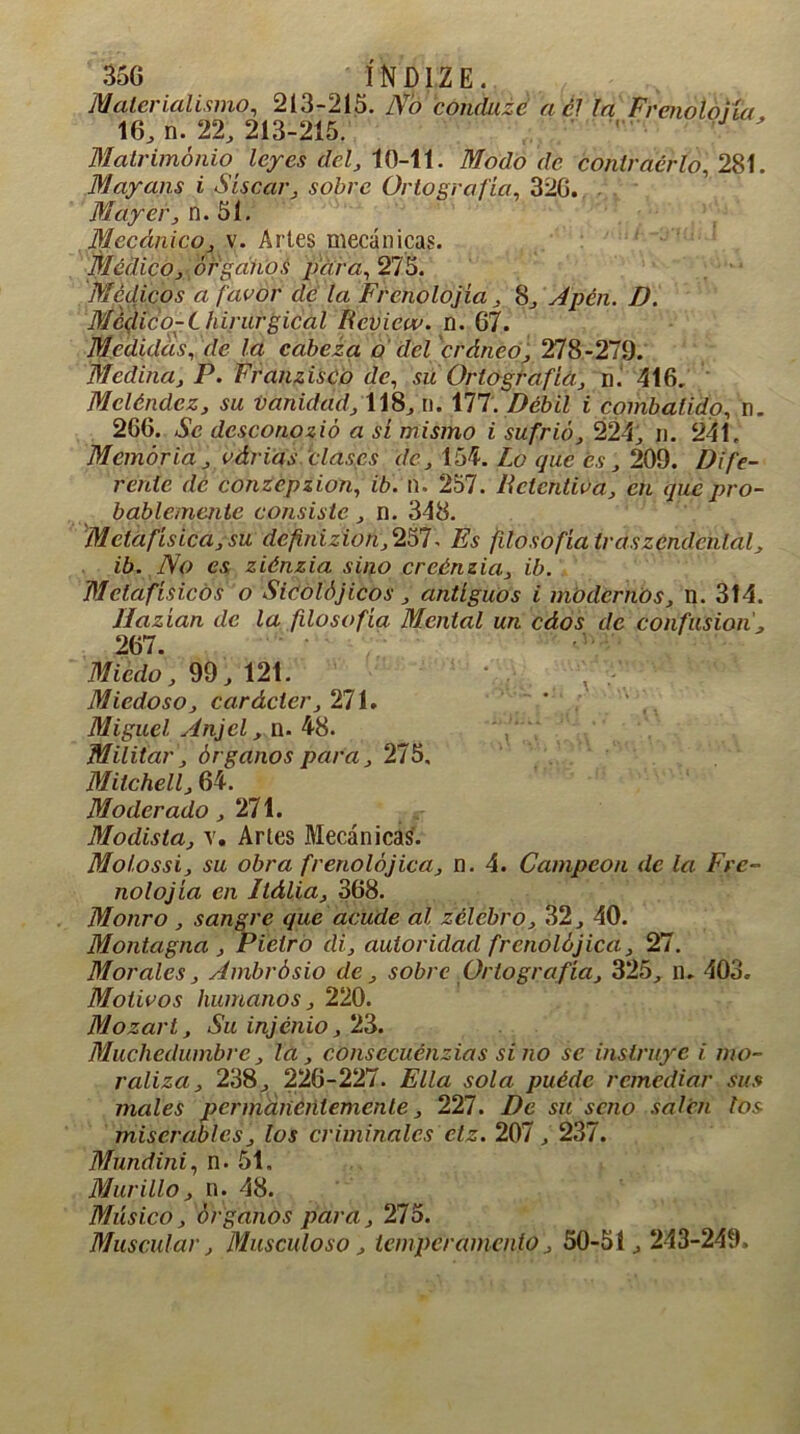 356 ÍNDIZE.
Materialismo, 213-215. No conduze a él la Frenolojía,
16, n. 22, 213-215.
Matrimónio leyes del, 10-11. Modo de contraérlo, 281.
Mayans i Síscar, sobre Ortografía, 326.
Mayer, n. 51.
Mecánico, v. Artes mecánicas.
Médico, órganos para, 275.
Médicos a favor de la Frenolojía, 8, Apén. D.
Médico-Chirurgical Review. n. 67.
Medidas, de la cabeza o del cráneo, 278-279.
Medina, P. Franzisco de, su Ortografía, n. 416.
Meléndez, su vanidad, 118, n. 177. Débil i combatido, n.
266. Se desconozió a sí mismo i sufrió, 224, n. 241.
Memória, várias clases de, 154. Lo que es, 209. Dife-
rente de conzepzion, ib. n. 257. Retentiva, en que pro-
bablemente consiste, n. 348.
Metafísica, su definizion, 257. Es filosofía traszendental,
ib. No es ziénzia sino creénzia, ib.
Metafísicos o Sicolójicos, antíguos i modernos, n. 314.
Hazian de la filosofía Mental un cáos de confusion,
267.
Miedo, 99, 121.
Miedoso, carácter, 271.
Miguel Anjel, n. 48.
Militar, órganos para, 275.
Mitchell, 64.
Moderado, 271.
Modista, v. Artes Mecánicas.
Molossi, su obra frenolójica, n. 4. Campeon de la Fre-
nolojía en Itália, 368.
Monro, sangre que acude al zélebro, 32, 40.
Montagna, Pietro di, autoridad frenolójica, 27.
Morales, Ambrósio de, sobre Ortografía, 325, n. 403.
Motivos humanos, 220.
Mozart, Su injénio, 23.
Muchedumbre, la, consecuénzias si no se instruye i mo-
raliza, 238, 226-227. Ella sola puéde remediar sus
males permanéntemente, 227. De su seno salen los
miserables, los criminales etz. 207, 237.
Mundini, n. 51.
Murillo, n. 48.
Músico, órganos para, 275.
Muscular, Musculoso, temperamento, 50-51, 243-249.